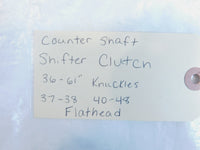 Counter Shaft
Shifter Clutch
36-61" Knuckles
37-38 40-48
Flathead